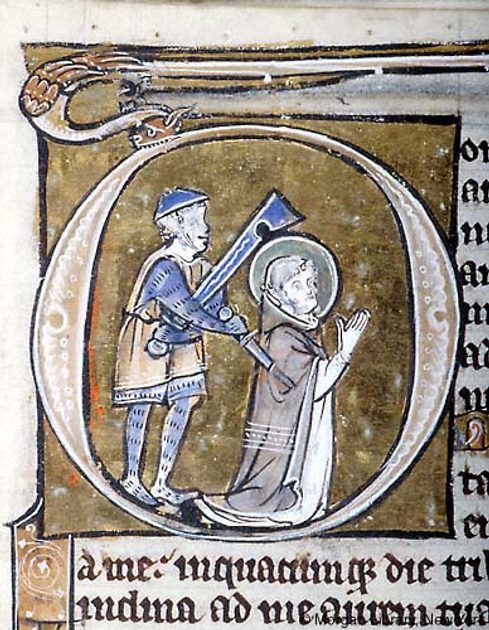 or
ta
a me: inquacumqꝫ die tri
inclina ad me aurem tua
© Morgan Library, New York